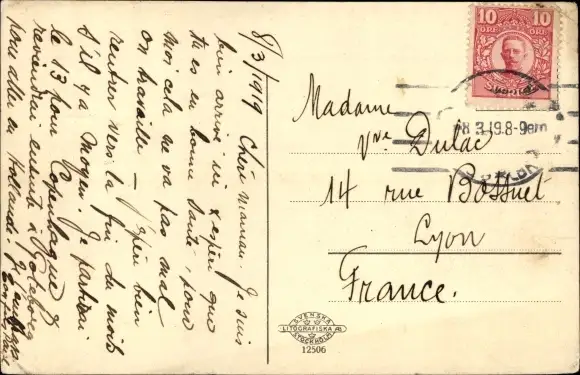 8/3/1919 Chère maman. Je suis
bien arrivé ici & espère que
tu es en bonne santé, pour
moi cela ne va pas mal
on travaille — J'espère bien
rentrer vers la fin du mois
s'il y a moyen. Je partirai
le 13 pour Copenhague &
reviendrai ensuite à Goteborg
pour aller en Hollande.
10 10
ÖRE ÖRE
SVERIGE
8 3 19.8-9em
Madame
Vve Dulac
14 rue Bossuet
Lyon
France.
SVENSKA
LITOGRAFISKA AB
STOCKHOLM
12506